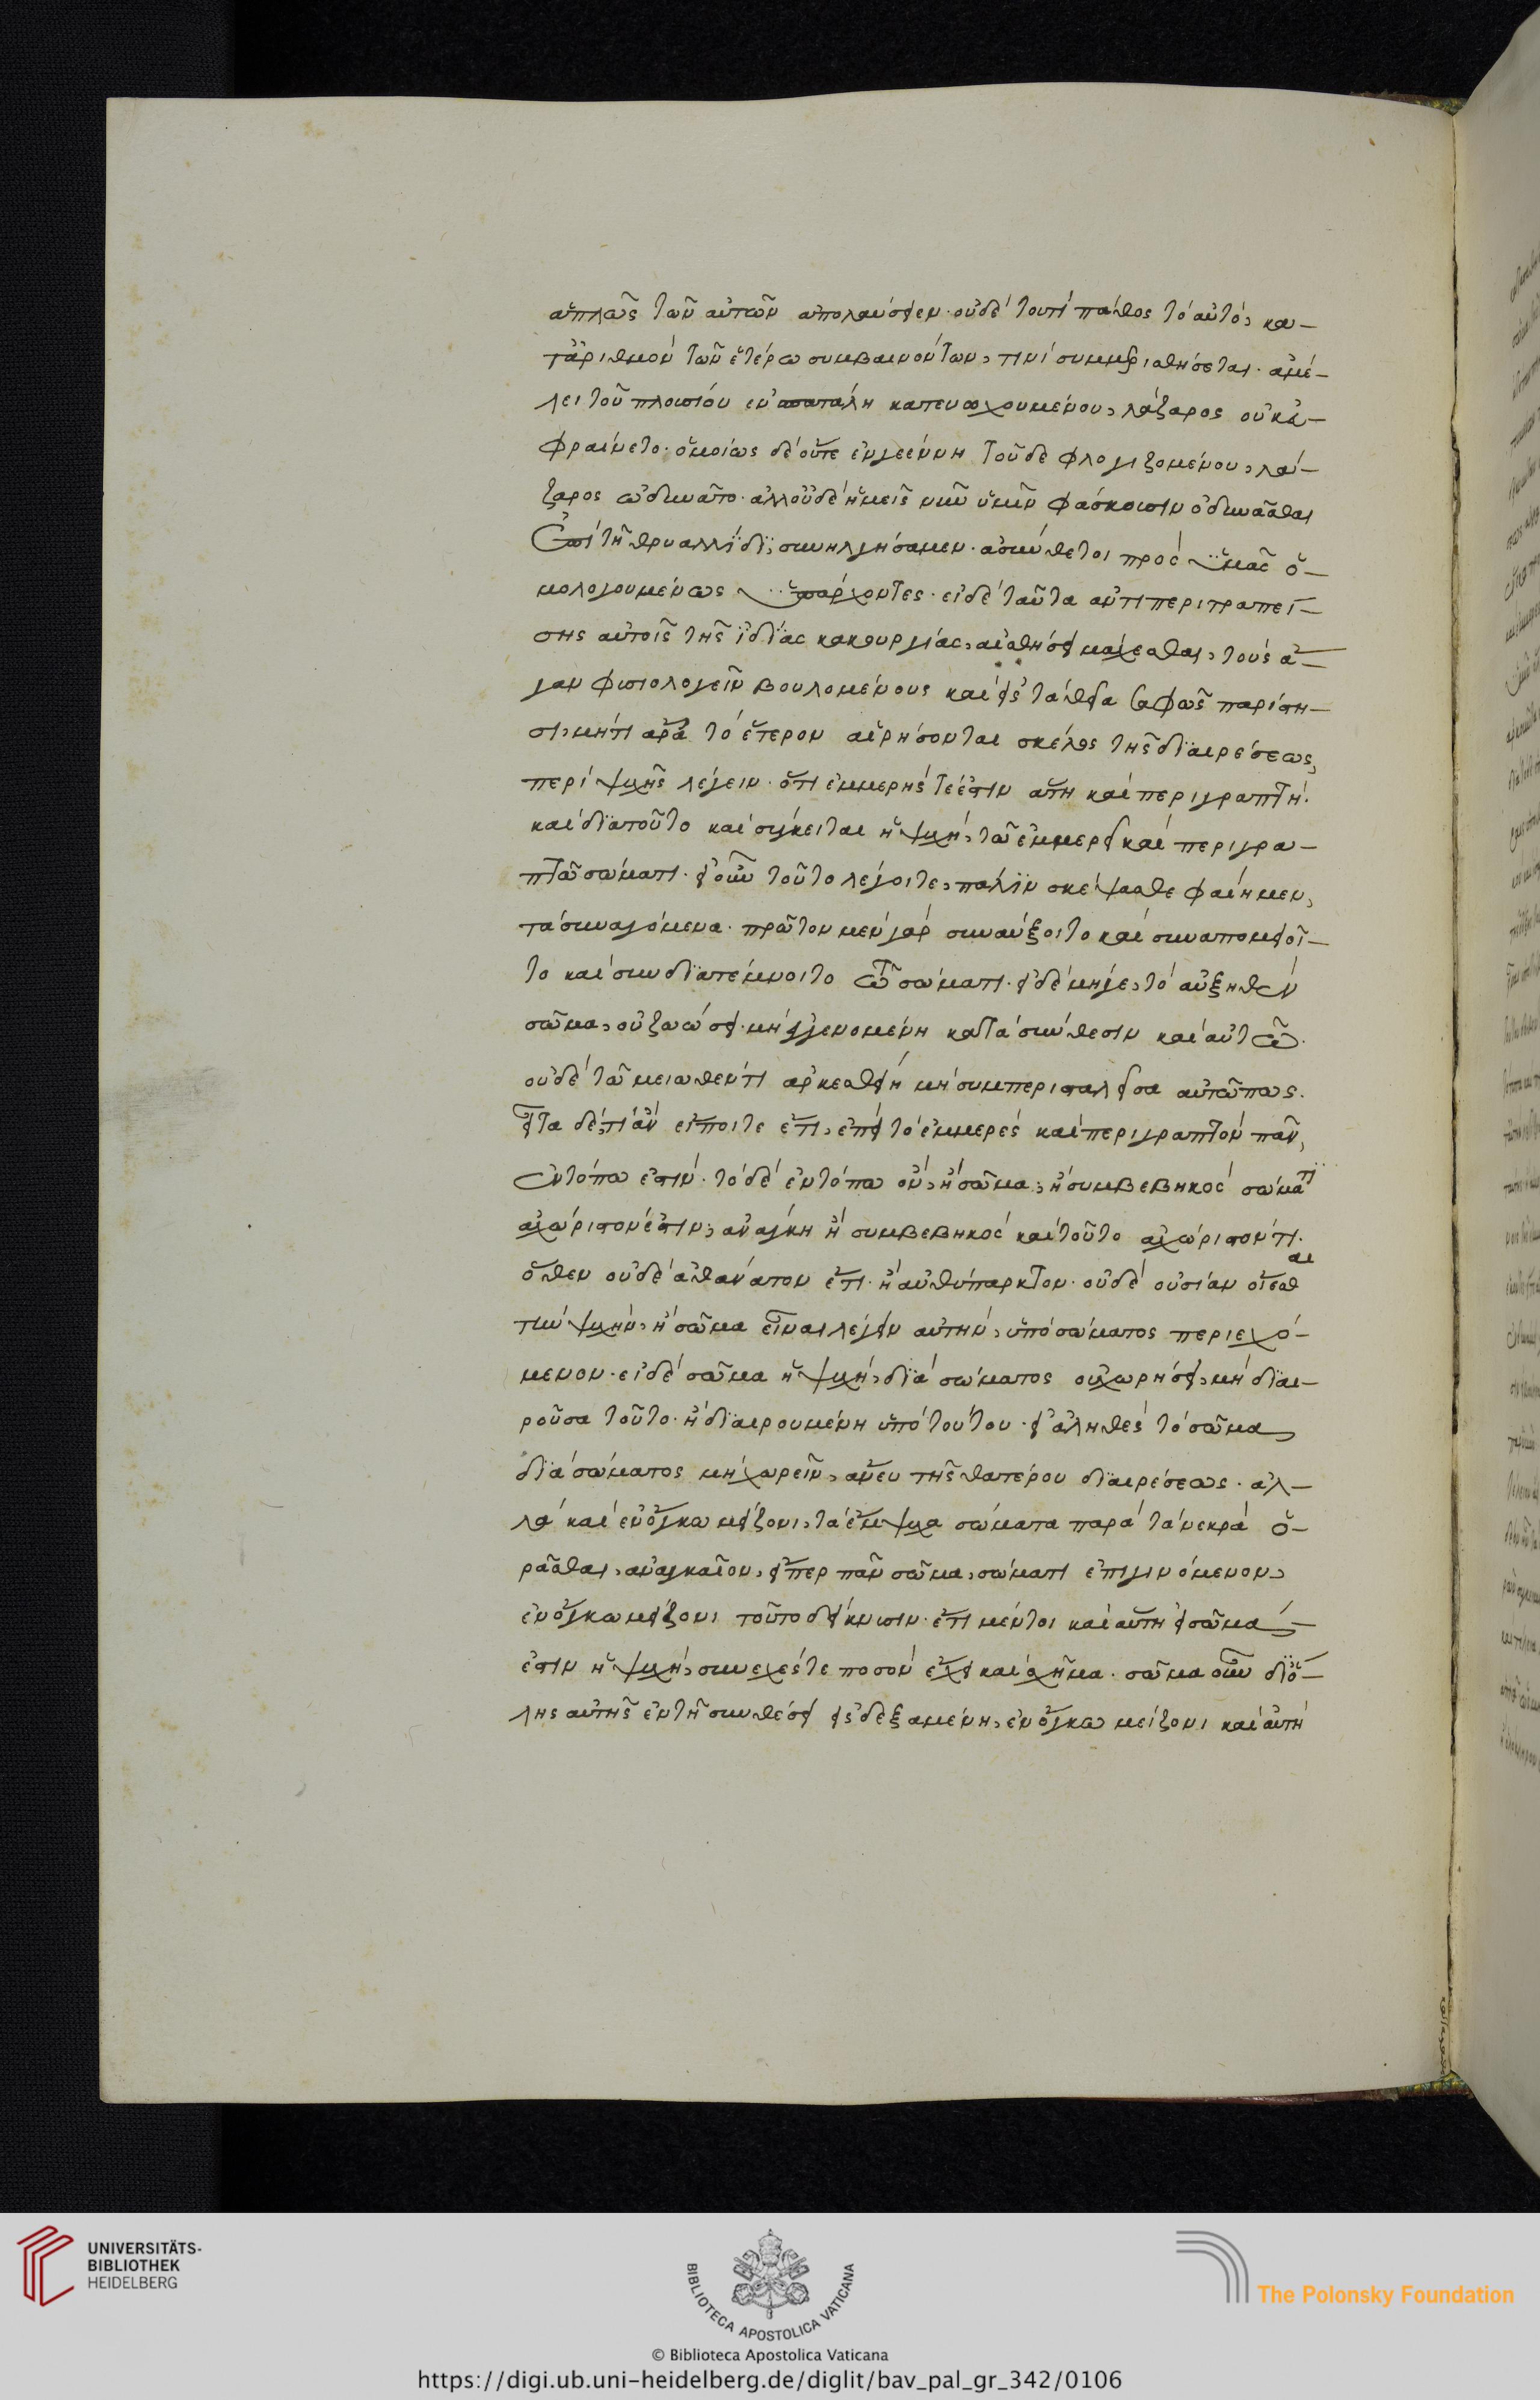 ἁπλῶς τῶν αὐτῶν ἀπολαύσειεν. οὐδέ τουτί πάθος τό αὐτό, κα-
τἀριθμόν τῶν ἑτέρω συμβαινόντων, τινί συμμερισθήσεται. ἀμέ-
λει τοῦ πλουσίου ἐν σπατάλη κατευωχουμένου, λάζαρος οὐκ εὐ-
φραίνετο. ὁμοίως δέ οὔτε ἐν γεέννη τοῦδε φλογιζομένου, λά-
ζαρος ὠδυνᾶτο. ἀλλοὐδέ ἡμεῖς νῦν ὑμῖν φάσκουσιν ὀδυνᾶσθαι
ἐπί τῆ θρυαλλίδι, συνηλγήσαμεν. ἀσύνθετοι πρός ὑμᾶς ὁ-
μολογουμένως ὑπάρχοντες. εἰ δέ ταῦτα ἀντιπεριτραπεί-
σης αὐτοῖς τῆς ἰδίας κακουργίας, αἰσθήσει μάχεσθαι, τούς ἄ-
γαν φυσιολογεῖν βουλομένους καί εἰς τἀθεῖα σαφῶς παρίστη-
σι, μήτι ἄρα τό ἕτερον αἱρήσονται σκέλος τῆς διαιρέσεως,
περί ψυχῆς λέγειν. ὅτι ἐμμερής τέ ἐστιν αὕτη καί περιγραπτή.
καί διατοῦτο καί σύγκειται ἡ ψυχή, τῶ ἐμμερεῖ καί περιγρα-
πτῶ σώματι. εἰ οὖν τοῦτο λέγοιτε, πάλιν σκέψασθε φαίημεν,
τά συναγόμενα. πρῶτον μέν γάρ συναύξοιτο καί συναπομειοῖ-
το καί συνδιατέμνοιτο τῶ σώματι. εἰ δέ μήγε, τό αὐξηθέν
σῶμα, οὐ ζωώσει. μή γενομένη κατά σύνθεσιν καί αὐτῶ.
οὐδέ τῶ μειωθέντι ἀρκεσθείη μή συμπερισταλεῖσα αὐτῶ πως.
εἶτα δέ, τί ἄν εἴποιτε ἔτι, ἐπεί τό ἐμμερές καί περιγραπτόν πᾶν,
ἐν τόπω ἐστίν. τό δέ ἐν τόπω ὄν, ἤ σῶμα, ἤ συμβεβηκός σώματι
ἀχώριστόν ἐστιν, ἀνάγκη ἤ συμβεβηκός καί τοῦτο ἀχώριστόν τι.
ὅθεν οὐδέ ἀθάνατον ἔτι. ἤ αὐθύπαρκτον. οὐδέ οὐσίαν οἴεσθαι
τήν ψυχήν, ἤ σῶμα εἶναι λέγειν αὐτήν, ὑπό σώματος περιεχό-
μενον. εἰ δέ σῶμα ἡ ψυχή, διά σώματος οὐ χωρήσει, μή διαι-
ροῦσα τοῦτο. ἤ διαιρουμένη ὑπό τούτου. εἰ ἀληθές τό σῶμα
διά σώματος μή χωρεῖν, ἄνευ τῆς θατέρου διαιρέσεως. ἀλ-
λά καί ἐν ὄγκω μείζονι, τά ἔμψυχα σώματα παρά τά νεκρά ὁ-
ρᾶσθαι, ἀναγκαῖον, εἴπερ πᾶν σῶμα, σώματι ἐπιγινόμενον,
ἐν ὄγκω μείζονι τοῦτο δείκνυσιν. ἔτι μέντοι καί αὕτη εἰ σῶμα
ἐστιν ἡ ψυχή, συνεχές τε ποσόν ἔχει καί σχῆμα. σῶμα οὖν δι ὅ-
λης αὐτῆς ἐν τῆ συνθέσει εἰσδεξαμένη, ἐν ὄγκω μείζονι καί αὐτή
UNIVERSITÄTS-
BIBLIOTHEK
HEIDELBERG
BIBLIOTECA APOSTOLICA VATICANA
The Polonsky Foundation
© Biblioteca Apostolica Vaticana
https://digi.ub.uni-heidelberg.de/diglit/bav_pal_gr_342/0106